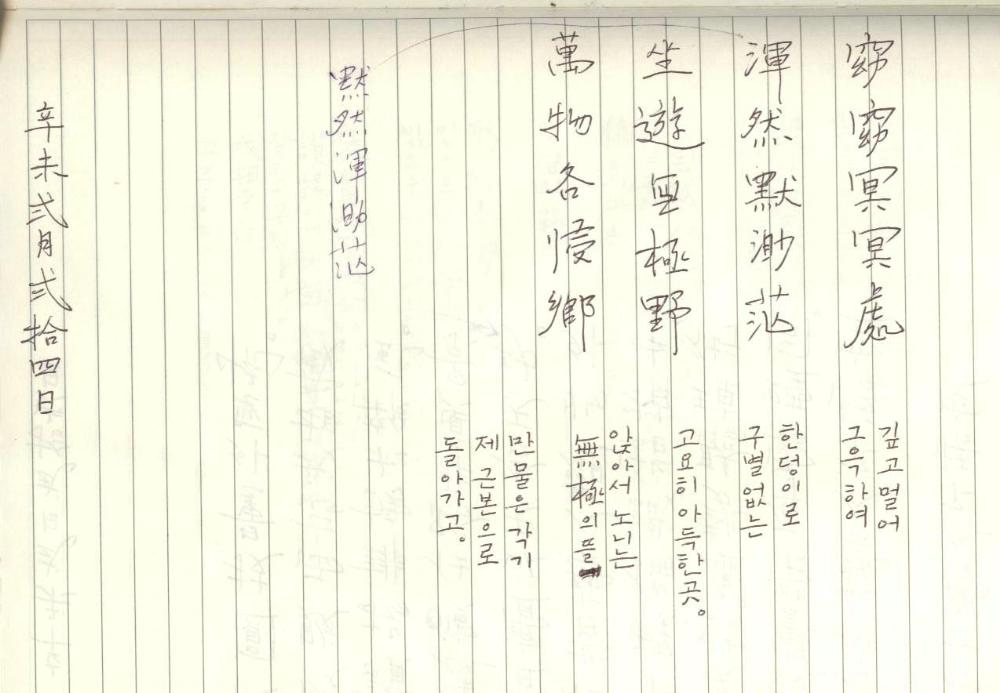 窈窈冥冥處
渾然默渺茫
坐遊無極野
萬物各復鄉
默然渾渺茫
깊고멀어
그윽하여
한덩이로
구별없는
고요히 아득한곳。
앉아서 노니는
無極의 뜰
만물은 각기
제 근본으로
돌아가고。
辛未弐月弐拾四日